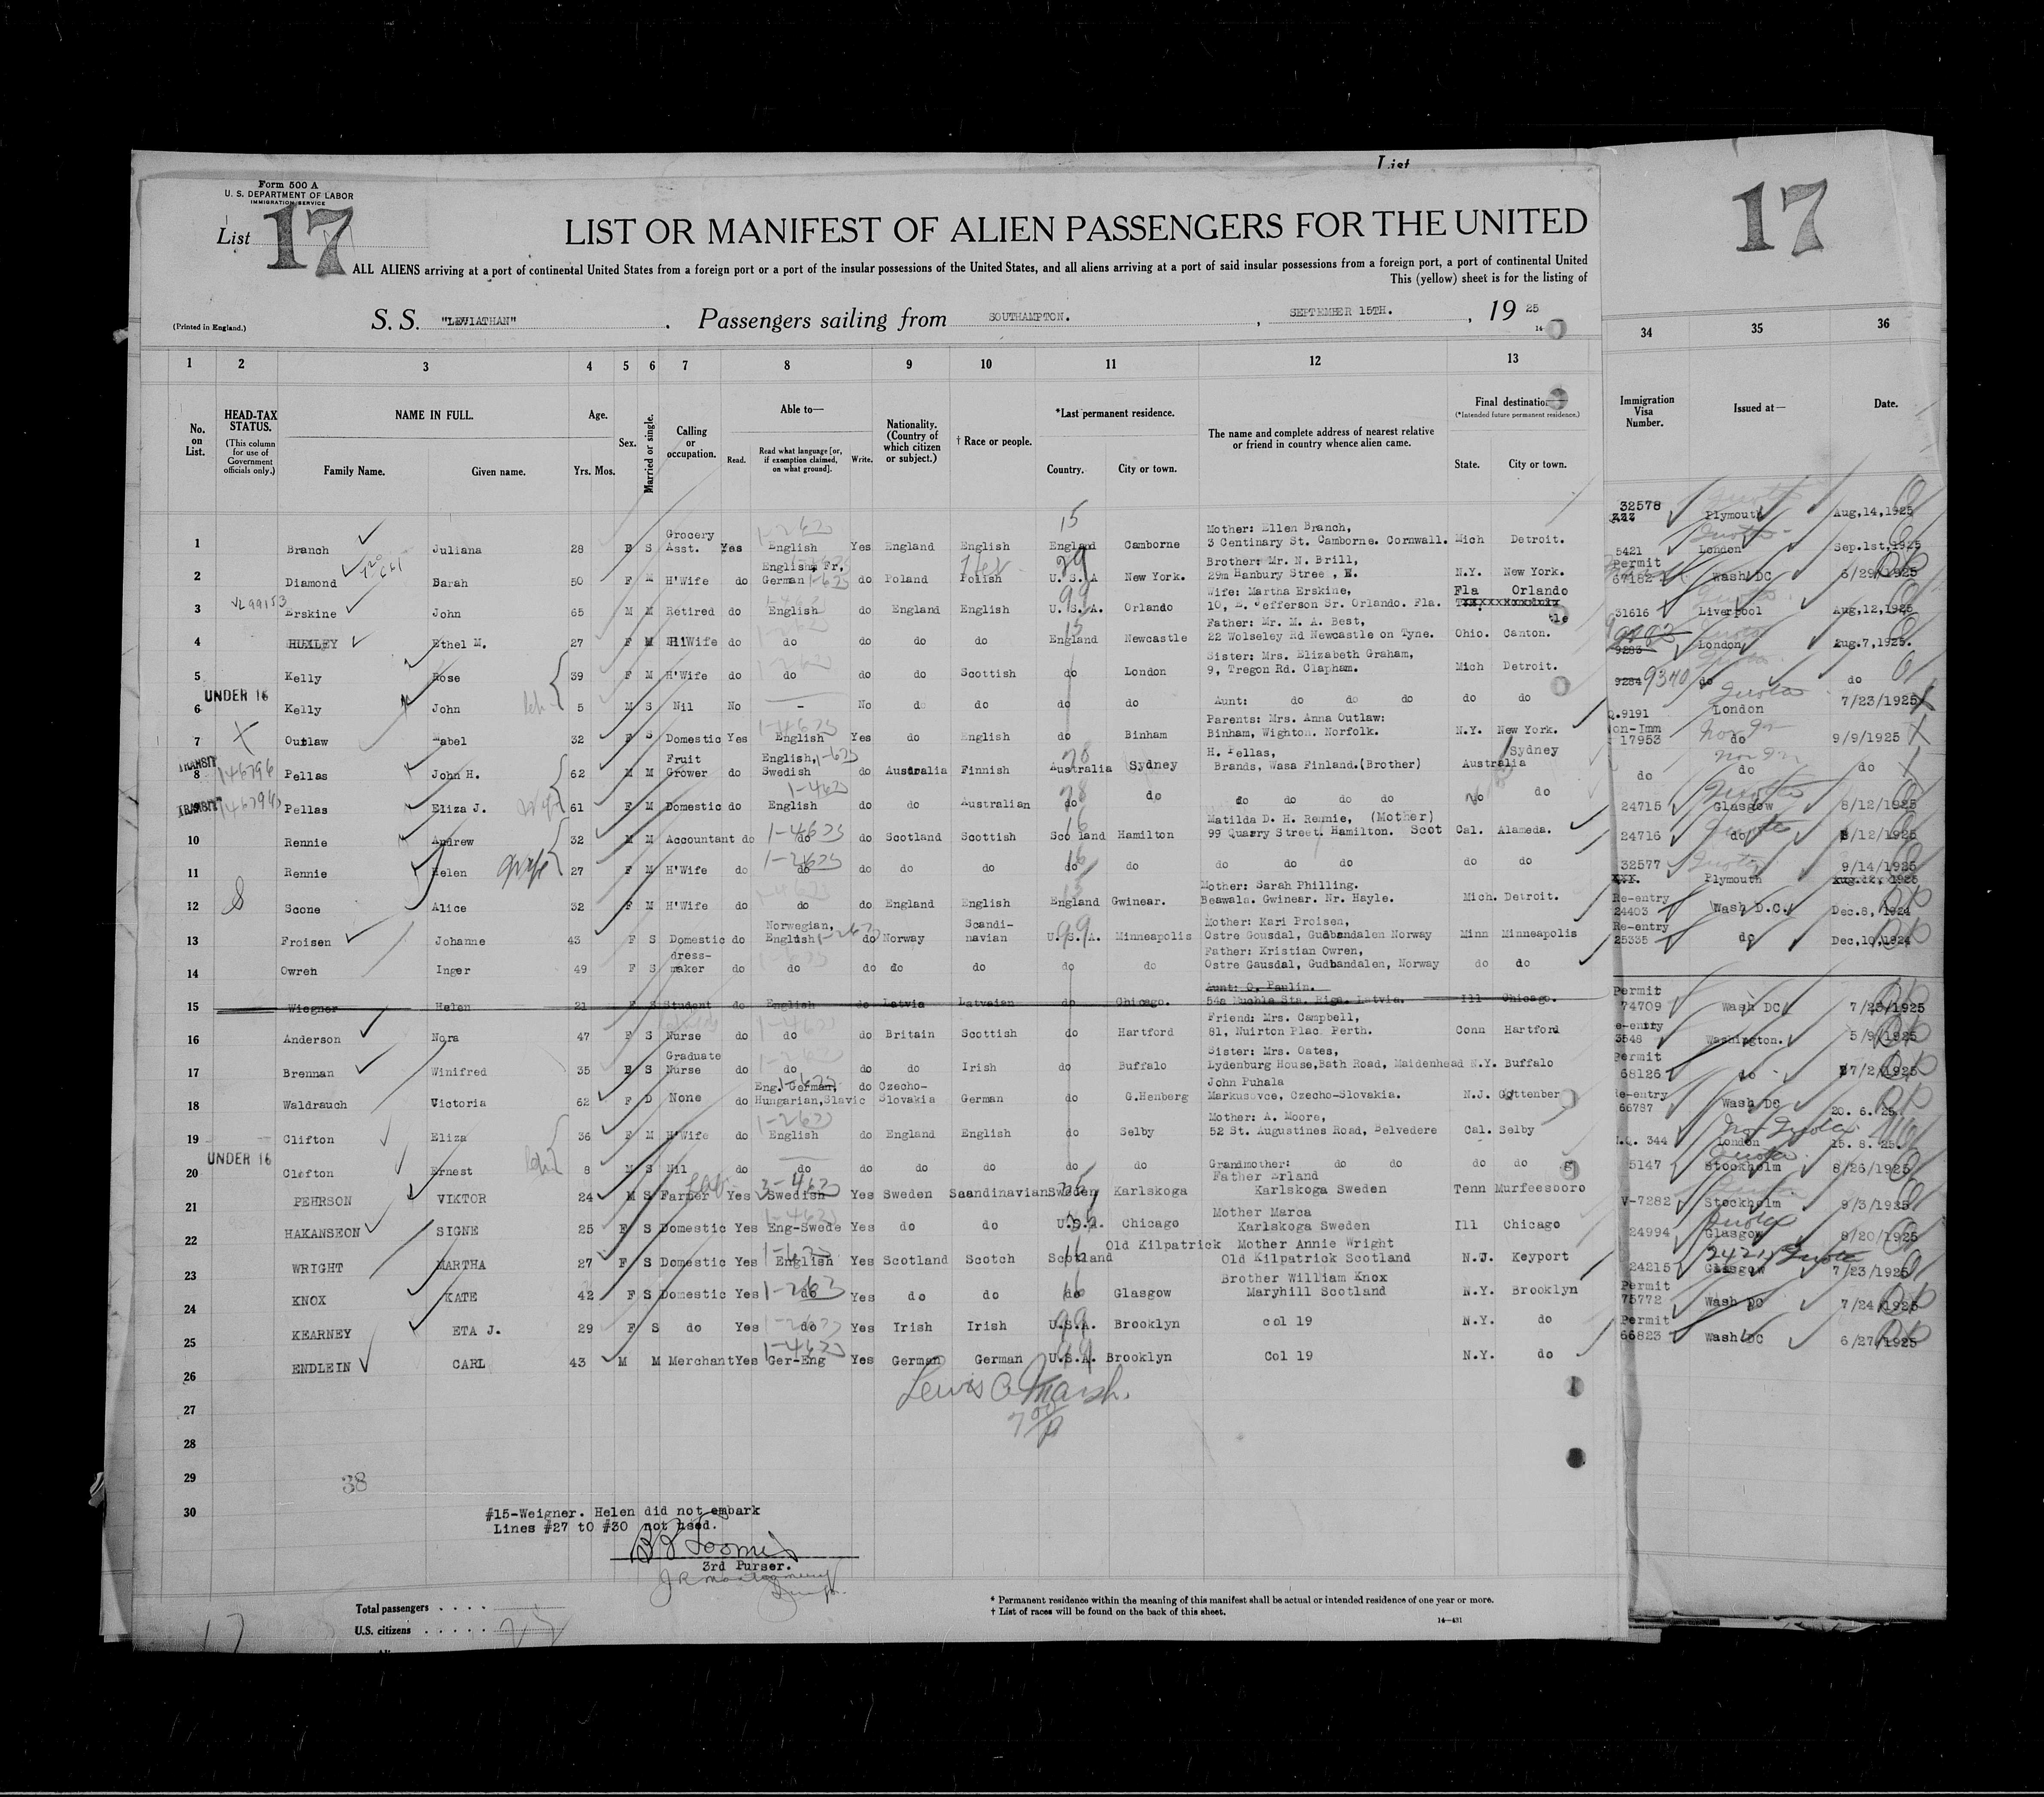 List
Form 500 A
U. S. DEPARTMENT OF LABOR
IMMIGRATION SERVICE
List 17
17
LIST OR MANIFEST OF ALIEN PASSENGERS FOR THE UNITED
ALL ALIENS arriving at a port of continental United States from a foreign port or a port of the insular possessions of the United States, and all aliens arriving at a port of said insular possessions from a foreign port, a port of continental United
This (yellow) sheet is for the listing of
(Printed in England.) S. S. "LEVIATHAN" . Passengers sailing from SOUTHAMPTON. , SEPTEMBER 15TH. , 19 25
1 2 3 4 5 6 7 8 9 10 11 12 13 34 35 36
No. on List. HEAD-TAX STATUS. (This column for use of Government officials only.) NAME IN FULL. Family Name. Given name. Age. Yrs. Mos. Sex. Married or single. Calling or occupation. Able to— Read. Read what language [or, if exemption claimed, on what ground]. Write. Nationality. (Country of which citizen or subject.) † Race or people. *Last permanent residence. Country. City or town. The name and complete address of nearest relative or friend in country whence alien came. Final destination (*Intended future permanent residence.) State. City or town. Immigration Visa Number. Issued at— Date.
1 Branch Juliana 28 F S Grocery Asst. Yes English Yes England English England Camborne Mother: Ellen Branch, 3 Centinary St. Camborne. Cornwall. Mich Detroit. 32578 Plymouth Aug,14,1925
2 Diamond Sarah 50 F M H'Wife do English, Fr, German do Poland Polish U.S.A New York. Brother: Mr. N. Brill, 29m Hanbury Stree , E. N.Y. New York. 5421 London Sep.1st,1925
3 Erskine John 65 M M Retired do English do England English U. S. A. Orlando Wife: Martha Erskine, 10, E. Jefferson Sr. Orlando. Fla. Fla Orlando Permit 67182 Wash DC 6/29/1925
4 HUXLEY Ethel M. 27 F M H'Wife do do do do do England Newcastle Father: Mr. M. A. Best, 22 Wolseley Rd Newcastle on Tyne. Ohio. Canton. 31616 Liverpool Aug,12,1925
5 Kelly Rose 39 F M H'Wife do do do do Scottish do London Sister: Mrs. Elizabeth Graham, 9, Tregon Rd. Clapham. Mich Detroit. 9283 London Aug.7,1925.
UNDER 16
6 Kelly John 5 M S Nil No - No do do do do Aunt: do do do do do 9284 9340 do do
7 Outlaw Mabel 32 F S Domestic Yes English Yes do English do Binham Parents: Mrs. Anna Outlaw: Binham, Wighton. Norfolk. N.Y. New York. Q.9191 London 7/23/1925
TRANSIT
8 Pellas John H. 62 M M Fruit Grower do English, Swedish do Australia Finnish Australia Sydney H. Pellas, Brands, Wasa Finland.(Brother) Australia Sydney Non-Imm 17953 do 9/9/1925
TRANSIT Pellas Eliza J. 61 F M Domestic do English do do Australian do do do do do do do do do do do
10 Rennie Andrew 32 M M Accountant do do do Scotland Scottish Scotland Hamilton Matilda D. H. Rennie, (Mother) 99 Quarry Street. Hamilton. Scot Cal. Alameda. 24715 Glasgow 8/12/1925
11 Rennie Helen 27 F M H'Wife do do do do do do do do do do do do 24716 do 8/12/1925
12 Scone Alice 32 F M H'Wife do do do England English England Gwinear. Mother: Sarah Philling. Beawala. Gwinear. Nr. Hayle. Mich. Detroit. 32577 Plymouth 9/14/1925
13 Froisen Johanne 43 F S Domestic do Norwegian, English do Norway Scandi-navian U.S.A. Minneapolis Mother: Kari Proisen, Ostre Gousdal, Gudbandalen Norway Minn Minneapolis Re-entry 24403 Wash D.C. Dec.8, 1924
14 Owren Inger 49 F S dress-maker do do do do do do do Father: Kristian Owren, Ostre Gausdal, Gudbandalen, Norway do do Re-entry 25335 do Dec,10,1924
15 Wiegner Helen 21 F S Student do English do Latvia Latvaian do Chicago. Aunt: O. Paulin. 54a Muchla Sta. Riga. Latvia. Ill Chicago.
16 Anderson Nora 47 F S Nurse do do do Britain Scottish do Hartford Friend: Mrs. Campbell, 81, Nuirton Plac Perth. Conn Hartford Permit 74709 Wash DC 7/25/1925
17 Brennan Winifred 35 F S Graduate Nurse do do do do Irish do Buffalo Sister: Mrs. Oates, Lydenburg House,Bath Road, Maidenhead N.Y. Buffalo Re-entry 3548 Washington. 5/9/1925
18 Waldrauch Victoria 62 F D None do Eng. German, Hungarian,Slavic do Czecho-Slovakia German do G.Henberg John Puhala Markusovce, Czecho-Slovakia. N.J. Guttenber Permit 68126 do 7/2/1925
19 Clifton Eliza 36 F M H'Wife do English do England English do Selby Mother: A. Moore, 52 St. Augustines Road, Belvedere Cal. Selby Re-entry 66787 Wash DC 20. 6. 25.
UNDER 16
20 Clefton Ernest 8 M S Nil do do do do do do do Grandmother: do do do do N.Q. 344 London 15. 8. 25.
21 PEHRSON VIKTOR 24 M S Farmer Yes Swedish Yes Sweden Saandinavian Sweden Karlskoga Father Erland Karlskoga Sweden Tenn Murfeesboro 5147 Stockholm 8/26/1925
22 HAKANSEON SIGNE 25 F S Domestic Yes Eng-Swede Yes do do U.S.A. Chicago Mother Marca Karlskoga Sweden Ill Chicago V-7282 Stockholm 9/3/1925
23 WRIGHT MARTHA 27 F S Domestic Yes English Yes Scotland Scotch Scotland Old Kilpatrick Mother Annie Wright Old Kilpatrick Scotland N.J. Keyport 24994 Glasgow 8/20/1925
24 KNOX KATE 42 F S Domestic Yes do Yes do do do Glasgow Brother William Knox Maryhill Scotland N.Y. Brooklyn 24215 Glasgow 7/23/1925
25 KEARNEY ETA J. 29 F S do Yes do Yes Irish Irish U.S.A. Brooklyn col 19 N.Y. do Permit 75772 Wash DC 7/24/1925
26 ENDLEIN CARL 43 M M Merchant Yes Ger-Eng Yes German German U.S.A. Brooklyn Col 19 N.Y. do Permit 66823 Wash DC 6/27/1925
Lewis A Marsh.
27
28
29
38
30
#15-Weigner. Helen did not embark
Lines #27 tO #30 not used.
3rd Purser.
Total passengers . . . .
U.S. citizens . . . . .
* Permanent residence within the meaning of this manifest shall be actual or intended residence of one year or more.
† List of races will be found on the back of this sheet.
14—431